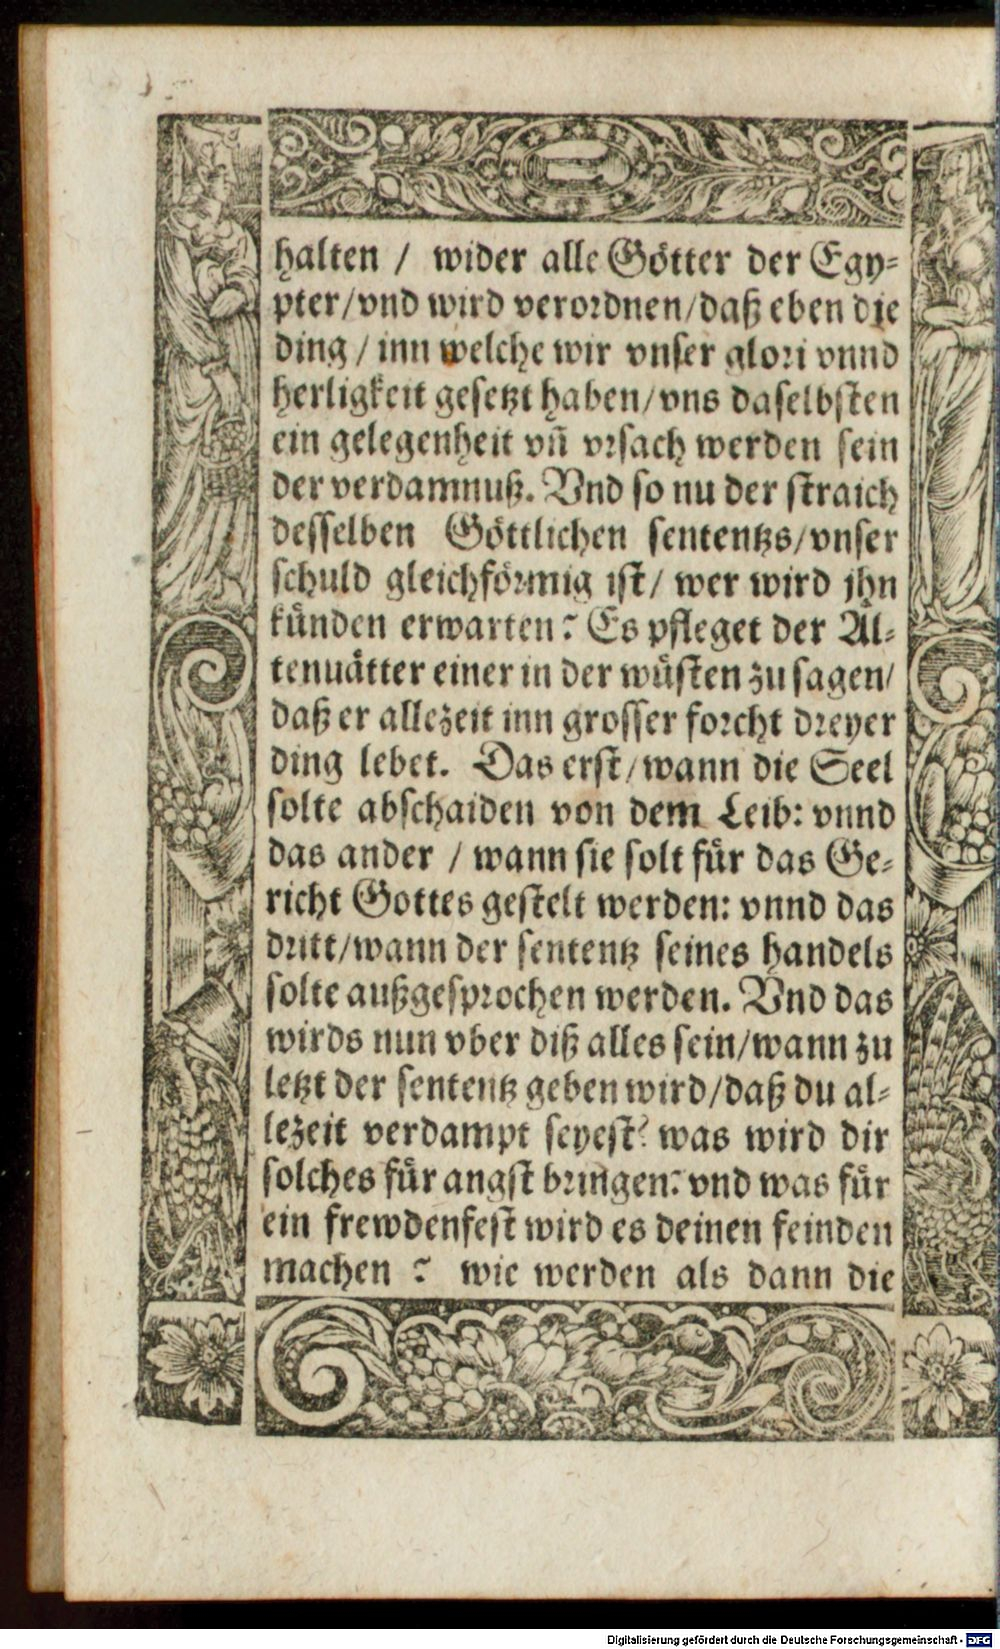 halten / wider alle Götter der Egy-
pter/vnd wird verordnen/daß eben die
ding / inn welche wir vnser glori vnnd
herligkeit gesetzt haben/vns daselbsten
ein gelegenheit vñ vrsach werden sein
der verdamnuß. Vnd so nu der straich
desselben Göttlichen sententzs/vnser
schuld gleichförmig ist/ wer wird jhn
künden erwarten? Es pfleget der Äl-
tenuätter einer in der wüsten zu sagen/
daß er allezeit inn grosser forcht dreyer
ding lebet. Das erst/wann die Seel
solte abschaiden von dem Leib: vnnd
das ander / wann sie solt für das Ge-
richt Gottes gestelt werden: vnnd das
dritt/wann der sententz seines handels
solte außgesprochen werden. Vnd das
wirds nun vber diß alles sein/wann zu
letzt der sententz geben wird/daß du al-
lezeit verdampt seyest? was wird dir
solches für angst bringen? vnd was für
ein frewdenfest wird es deinen feinden
machen ? wie werden als dann die
Digitalisierung gefördert durch die Deutsche Forschungsgemeinschaft - DFG